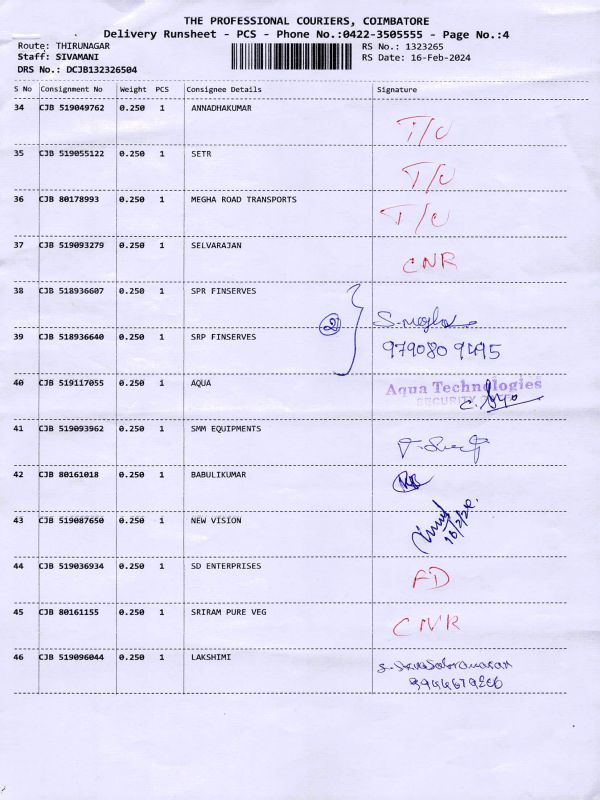 THE PROFESSIONAL COURIERS, COIMBATORE
Delivery Runsheet - PCS - Phone No.:0422-3505555 - Page No.:4
Route: THIRUNAGAR RS No.: 1323265
Staff: SIVAMANI RS Date: 16-Feb-2024
DRS No.: DCJB132326504
S No Consignment No Weight PCS Consignee Details Signature
34 CJB 519049762 0.250 1 ANNADHAKUMAR T/C
35 CJB 519055122 0.250 1 SETR T/C
36 CJB 80178993 0.250 1 MEGHA ROAD TRANSPORTS T/C
37 CJB 519093279 0.250 1 SELVARAJAN CNR
38 CJB 518936607 0.250 1 SPR FINSERVES S. megha
39 CJB 518936640 0.250 1 SRP FINSERVES 2 979080 9495
40 CJB 519117055 0.250 1 AQUA Aqua Technologies
SECURITY
41 CJB 519093962 0.250 1 SMM EQUIPMENTS
42 CJB 80161018 0.250 1 BABULIKUMAR
43 CJB 519087650 0.250 1 NEW VISION
44 CJB 519036934 0.250 1 SD ENTERPRISES FD
45 CJB 80161155 0.250 1 SRIRAM PURE VEG CNR
46 CJB 519096044 0.250 1 LAKSHMI